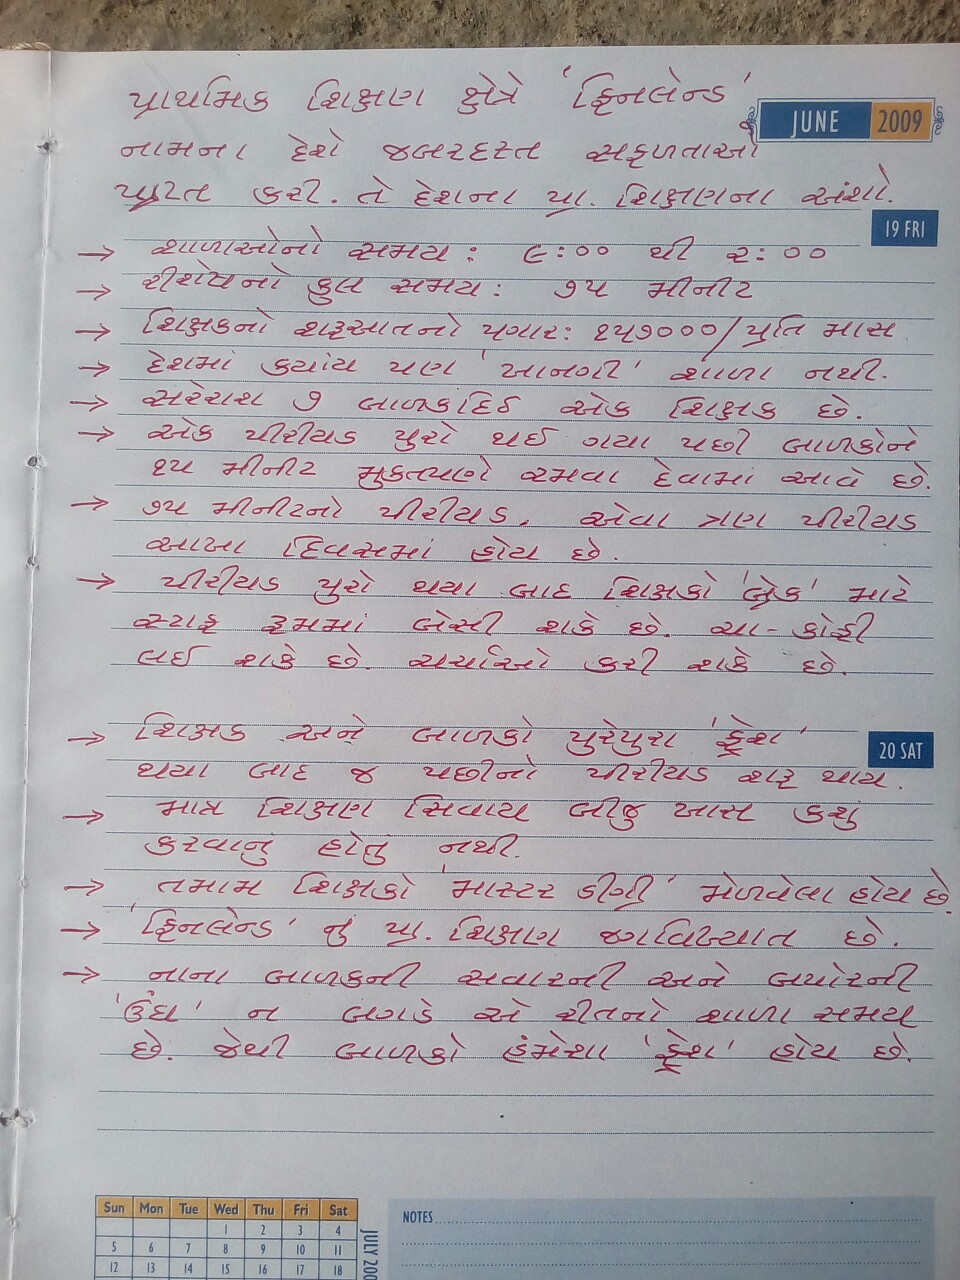 પ્રાથમિક શિક્ષણ ક્ષેત્રે 'ફિનલેન્ડ'
JUNE 2009
નામના દેશે જબરદસ્ત સફળતાઓ
પ્રાપ્ત કરી. તે દેશના પ્રા. શિક્ષણના અંશો.
19 FRI
→ શાળાઓનો સમય : ૯:૦૦ થી ૨:૦૦
→ રીશેષનો કુલ સમય : ૭૫ મીનીટ
→ શિક્ષકનો શરૂઆતનો પગાર: ૨૫૭૦૦૦/પ્રતિ માસ
→ દેશમાં ક્યાંય પણ 'ખાનગી' શાળા નથી.
→ સરેરાશ ૭ બાળકદિઠ એક શિક્ષક છે.
→ એક પીરીયડ પુરો થઈ ગયા પછી બાળકોને
૧૫ મીનીટ મુક્તપણે રમવા દેવામાં આવે છે.
→ ૭૫ મીનીટનો પીરીયડ, એવા ત્રણ પીરીયડ
આખા દિવસમાં હોય છે.
→ પીરીયડ પુરો થયા બાદ શિક્ષકો 'બ્રેક' માટે
સ્ટાફ રૂમમાં બેસી શકે છે. ચા-કોફી
લઈ શકે છે. ચર્ચાઓ કરી શકે છે.
→ શિક્ષક અને બાળકો પુરેપુરા 'ફ્રેશ'
20 SAT
થયા બાદ જ પછીનો પીરીયડ શરૂ થાય.
→ માત્ર શિક્ષણ સિવાય બીજુ ખાસ કશું
કરવાનું હોતું નથી.
→ તમામ શિક્ષકો 'માસ્ટર ડીગ્રી' મેળવેલા હોય છે.
→ 'ફિનલેન્ડ' નું પ્રા. શિક્ષણ જગવિખ્યાત છે.
→ નાના બાળકની સવારની અને બપોરની
'ઉંઘ' ન બગડે એ રીતનો શાળા સમય
છે. જેથી બાળકો હંમેશા 'ફ્રેશ' હોય છે.
Sun Mon Tue Wed Thu Fri Sat
1 2 3 4
5 6 7 8 9 10 11
12 13 14 15 16 17 18
NOTES